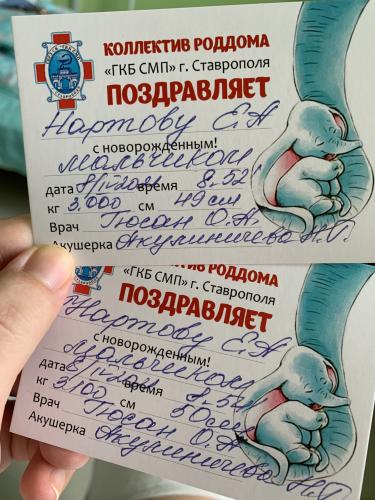 КОЛЛЕКТИВ РОДДОМА
«ГКБ СМП» г. Ставрополя
ПОЗДРАВЛЯЕТ
Нартову Е.А
с новорожденным!
мальчиком
дата 8/IV время 8.52
кг 3.000 см 49 см
Врач Гюсан О.А
Акушерка Акулиничева Н.Г.
КОЛЛЕКТИВ РОДДОМА
«ГКБ СМП» г. Ставрополя
ПОЗДРАВЛЯЕТ
Нартову Е.А
с новорожденным!
мальчиком
дата 8/IV время
кг 3.100 см 50 см
Врач Гюсан О.А
Акушерка Акулиничева Н.Г.